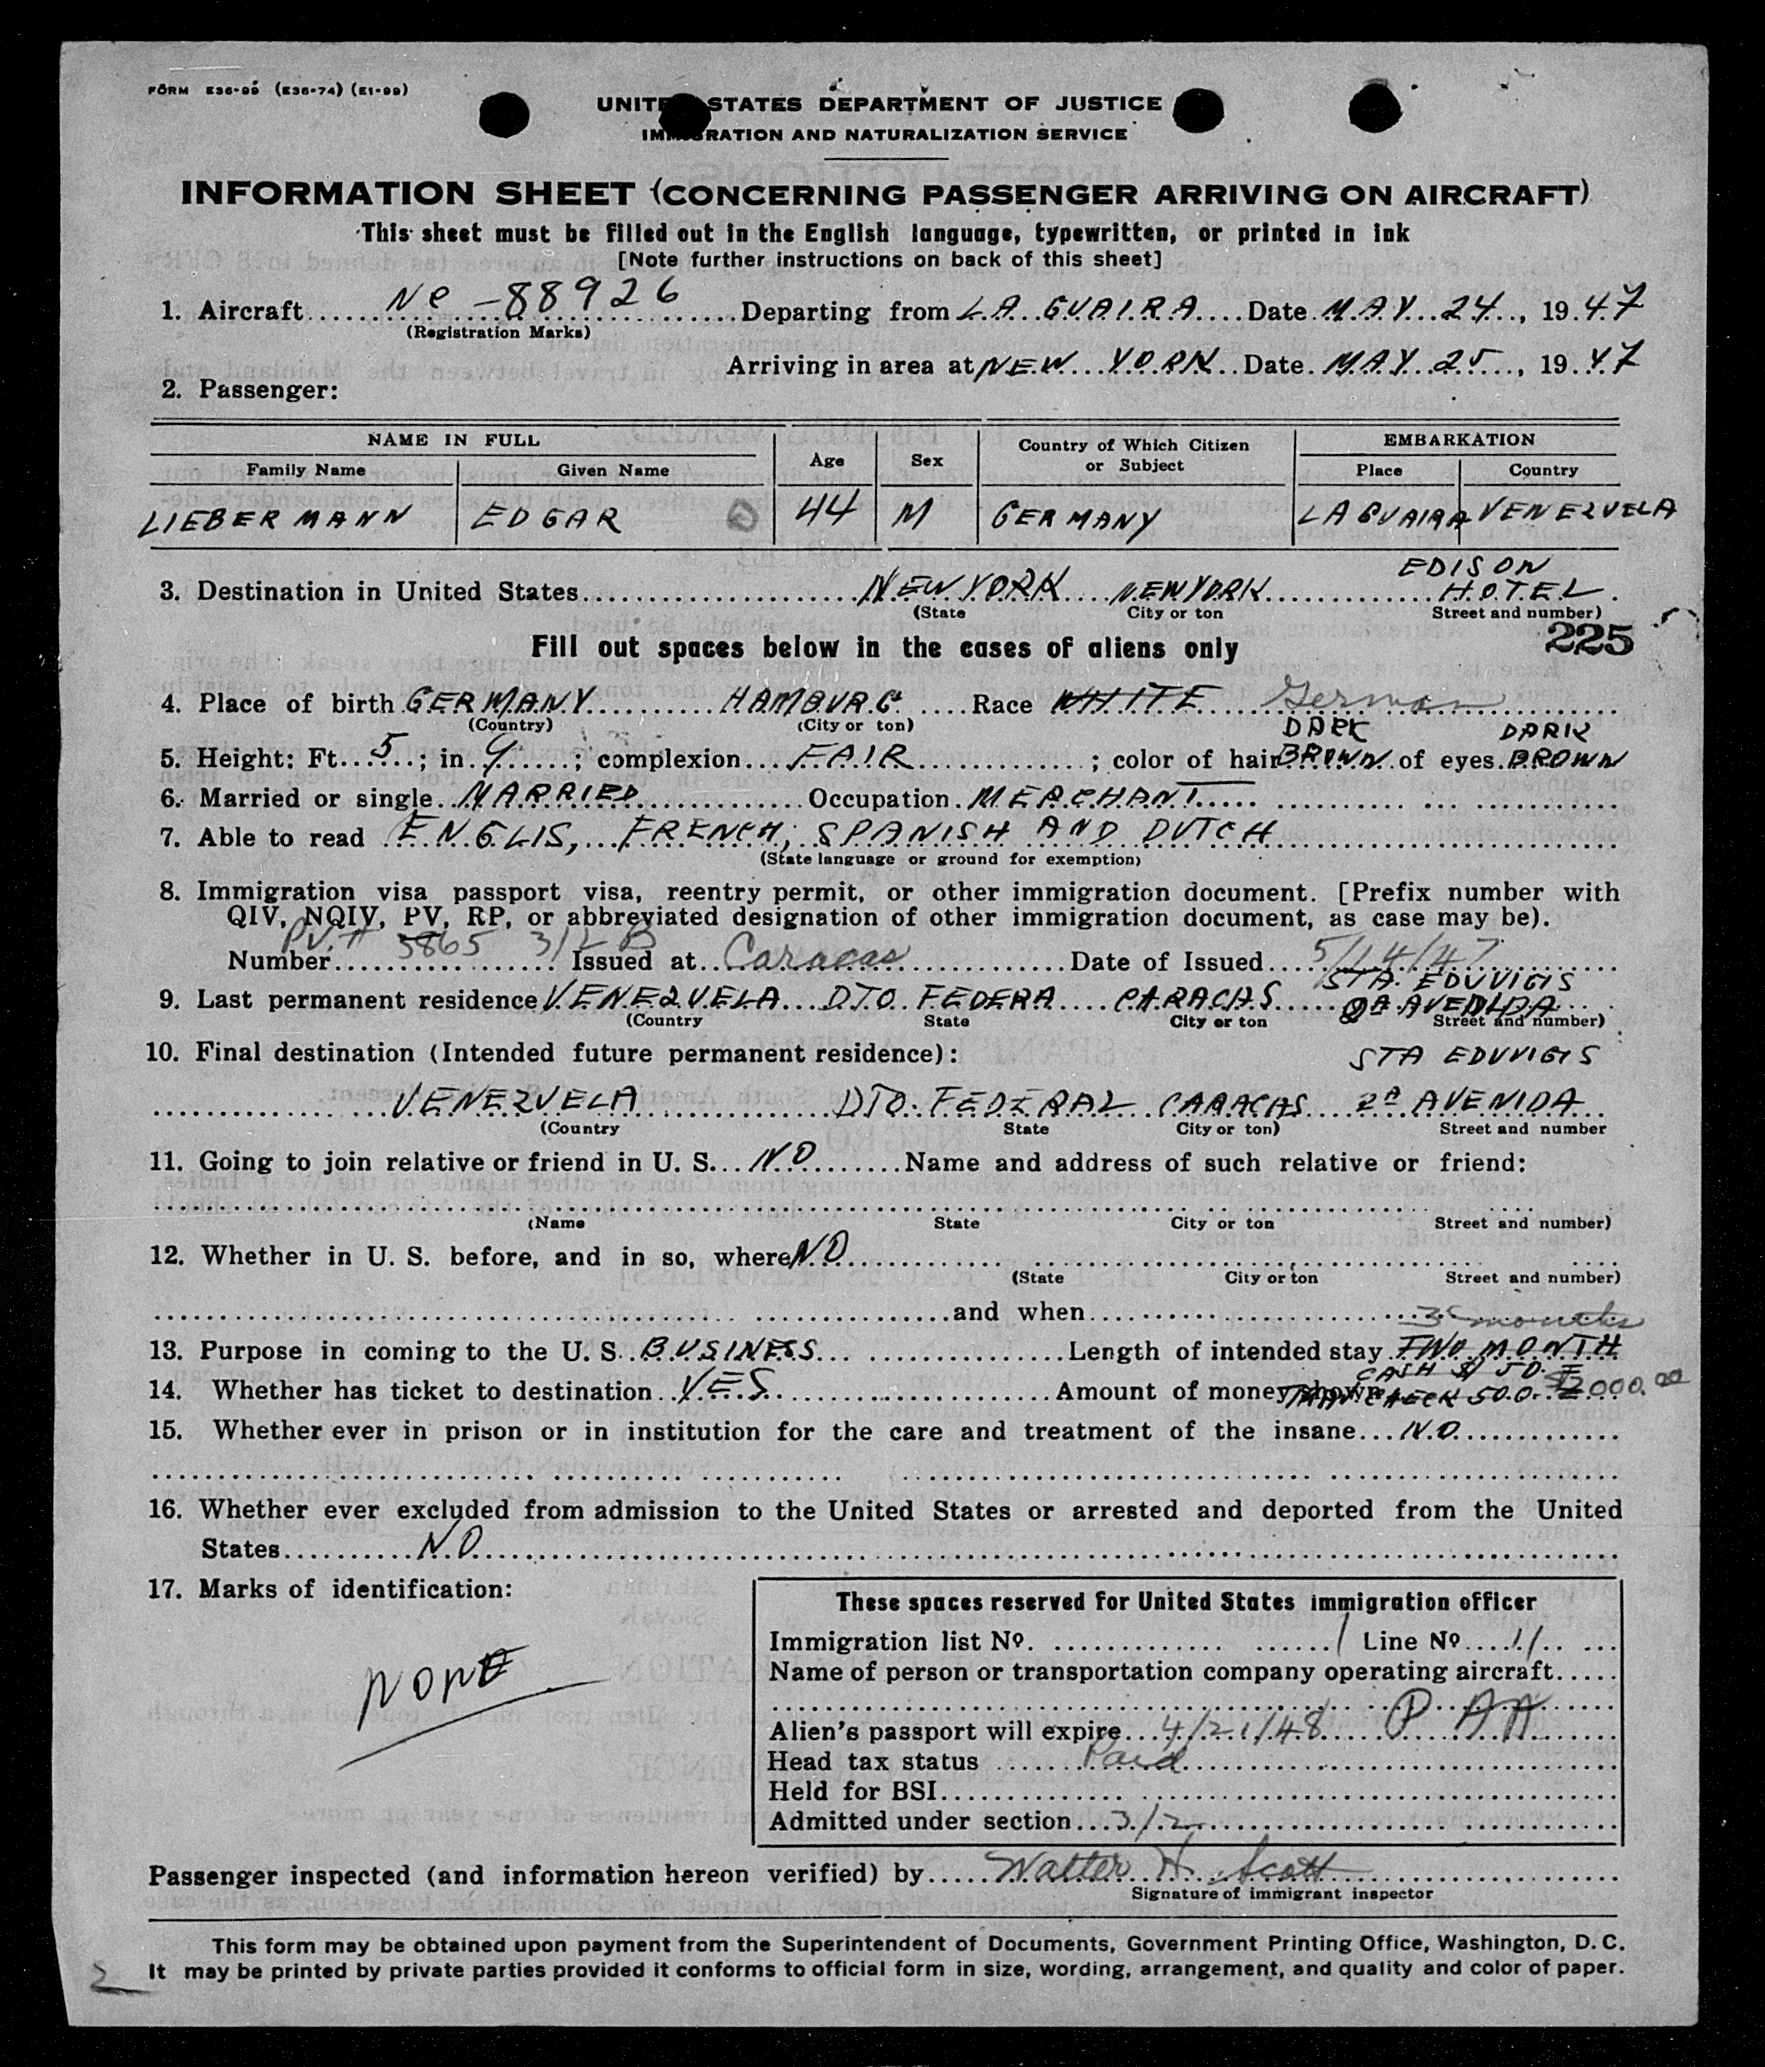 FORM E36-99 (E36-74) (E1-99)
UNITED STATES DEPARTMENT OF JUSTICE
IMMIGRATION AND NATURALIZATION SERVICE
INFORMATION SHEET (CONCERNING PASSENGER ARRIVING ON AIRCRAFT)
This sheet must be filled out in the English language, typewritten, or printed in ink
[Note further instructions on back of this sheet]
1. Aircraft NC-88926 Departing from LA GUAIRA Date MAY 24, 1947
(Registration Marks)
Arriving in area at NEW YORK Date MAY 25, 1947
2. Passenger:
NAME IN FULL Age Sex Country of Which Citizen or Subject EMBARKATION
Family Name Given Name Place Country
LIEBERMANN EDGAR 44 M GERMANY LA GUAIRA VENEZUELA
EDISON
3. Destination in United States NEW YORK NEW YORK HOTEL
(State City or ton Street and number)
Fill out spaces below in the cases of aliens only 225
4. Place of birth GERMANY HAMBURG Race WHITE German
(Country) (City or ton) DARK DARK
5. Height: Ft. 5; in. 9; complexion FAIR; color of hair BROWN of eyes BROWN
6. Married or single MARRIED Occupation MERCHANT
7. Able to read ENGLIS, FRENCH, SPANISH AND DUTCH
(State language or ground for exemption)
8. Immigration visa passport visa, reentry permit, or other immigration document. [Prefix number with
QIV, NQIV, PV, RP, or abbreviated designation of other immigration document, as case may be).
Number PV.# 5865 3/2 B Issued at Caracas Date of Issued 5/14/47
STA. EDUVIGIS
9. Last permanent residence VENEZUELA DTO FEDERA CARACAS 2A AVENIDA
(Country State City or ton Street and number)
10. Final destination (Intended future permanent residence): STA EDUVIGIS
VENEZUELA DTO. FEDERAL CARACAS 2A AVENIDA
(Country State City or ton) Street and number
11. Going to join relative or friend in U. S. NO Name and address of such relative or friend:
(Name State City or ton Street and number)
12. Whether in U. S. before, and in so, where NO
(State City or ton Street and number)
and when
3 months
13. Purpose in coming to the U. S. BUSINESS Length of intended stay TWO MONTH
CASH $ 50
14. Whether has ticket to destination YES Amount of money shown TRAV. CHECK 500 $2000.00
15. Whether ever in prison or in institution for the care and treatment of the insane NO
16. Whether ever excluded from admission to the United States or arrested and deported from the United
States NO
17. Marks of identification:
NONE
These spaces reserved for United States immigration officer
Immigration list No. 1 Line No 11
Name of person or transportation company operating aircraft
P AA
Alien's passport will expire 4/21/48
Head tax status Paid
Held for BSI
Admitted under section 3/2
Passenger inspected (and information hereon verified) by Walter H. Scott
Signature of immigrant inspector
This form may be obtained upon payment from the Superintendent of Documents, Government Printing Office, Washington, D. C.
It may be printed by private parties provided it conforms to official form in size, wording, arrangement, and quality and color of paper.
2